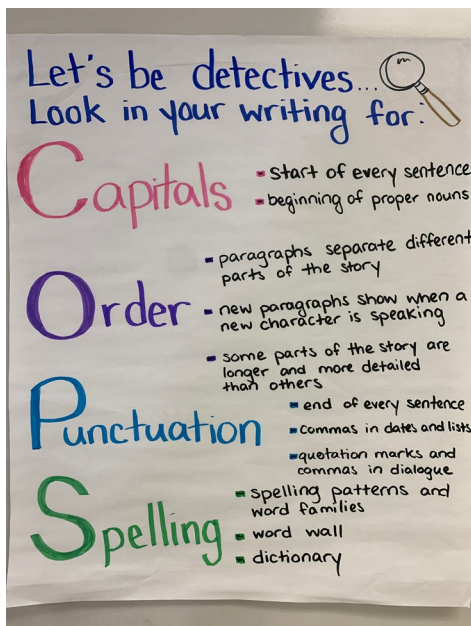 Let's be detectives...
Look in your writing for:
Capitals
- start of every sentence
- beginning of proper nouns
Order
- paragraphs separate different
parts of the story
- new paragraphs show when a
new character is speaking
- some parts of the story are
longer and more detailed
than others
Punctuation
- end of every sentence
- commas in dates and lists
- quotation marks and
commas in dialogue
Spelling
- spelling patterns and
word families
- word wall
- dictionary